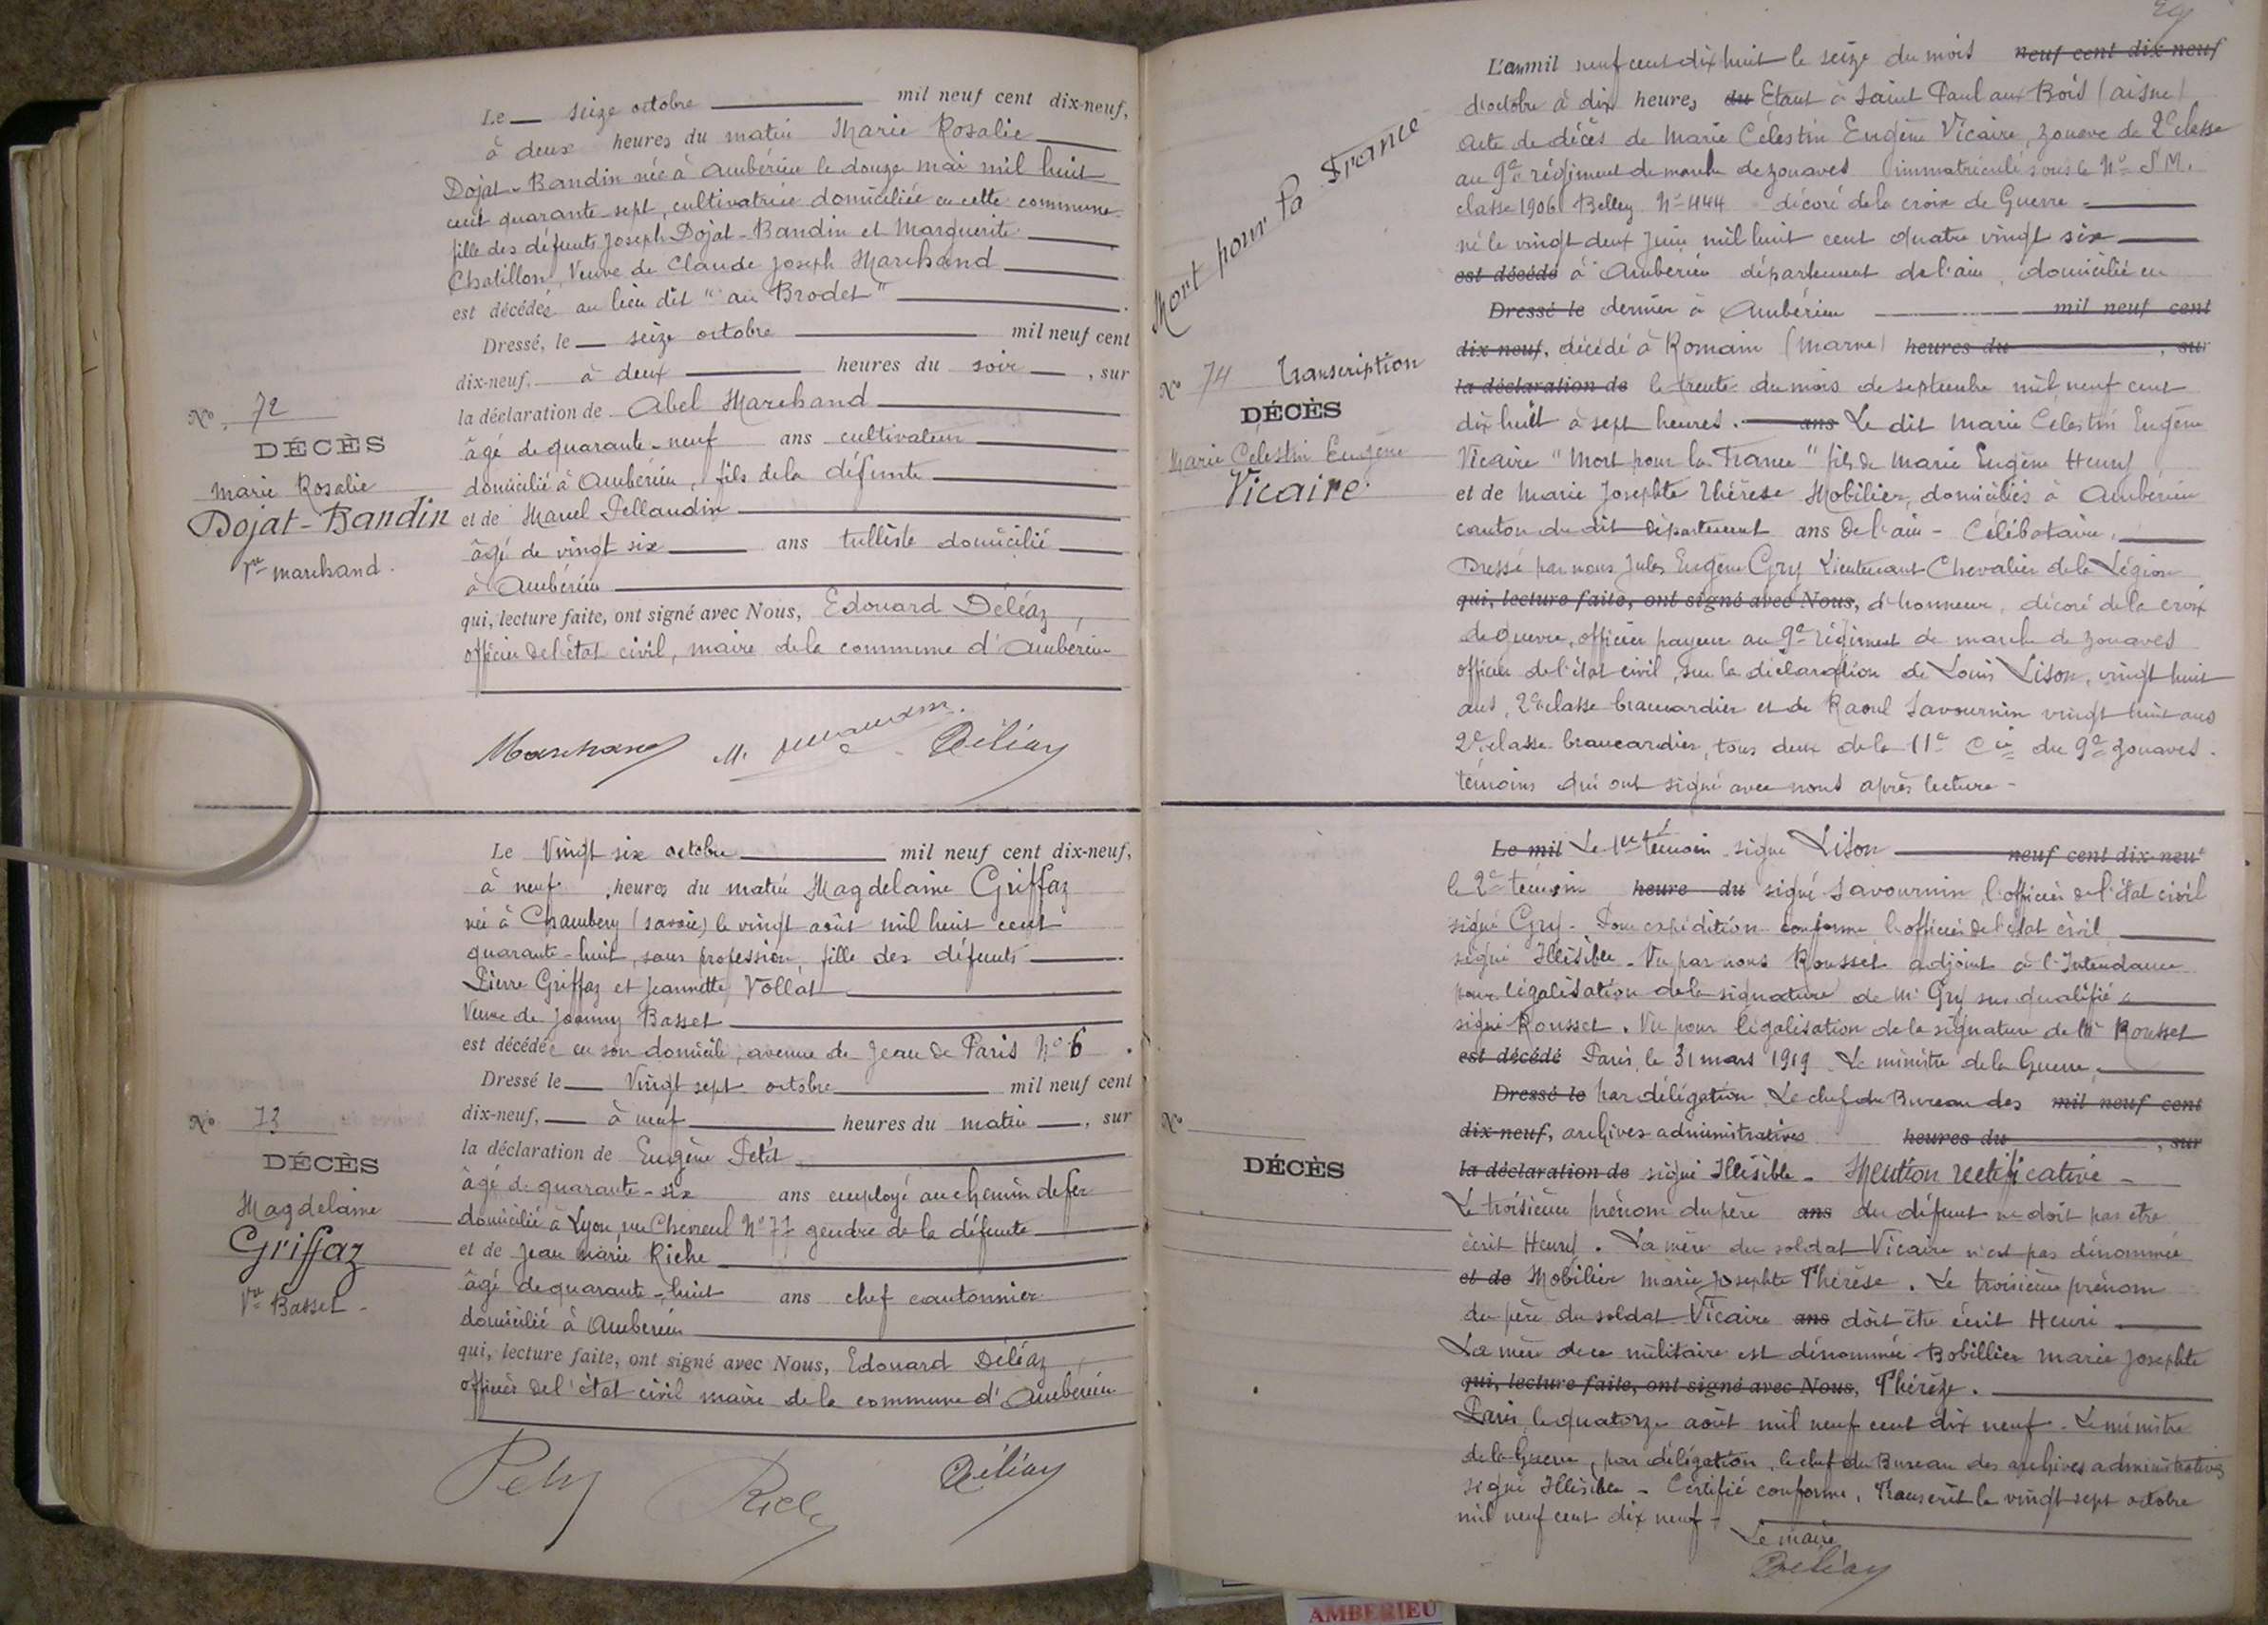 Le seize octobre mil neuf cent dix-neuf,
à deux heures du matin Marie Rosalie
Dojat-Bandin née à Ambérieu le douze mai mil huit
cent quarante-sept, cultivatrice domiciliée en cette commune
fille des défunts Joseph Dojat-Bandin et Marguerite
Chatillon, Veuve de Claude Joseph Marchand
est décédée au lieu dit "au Brodet"
Dressé, le seize octobre mil neuf cent
dix-neuf, à deux heures du soir, sur
la déclaration de Abel Marchand
âgé de quarante-neuf ans cultivateur
domicilié à Ambérieu, fils de la défunte
et de Marcel Pellaudin
âgé de vingt six ans tulliste domicilié
à Ambérieu
qui, lecture faite, ont signé avec Nous, Edouard Déléaz,
officier de l'état civil, maire de la commune d'Ambérieu
No 72
DÉCÈS
Marie Rosalie
Dojat-Bandin
Vve Marchand.
Marchand Déléaz
Le Vingt six octobre mil neuf cent dix-neuf,
à neuf heures du matin Magdelaine Griffaz
née à Chambery (Savoie) le vingt août mil huit cent
quarante-huit, sans profession, fille des défunts
Pierre Griffaz et Jeannette Vollat
Veuve de Joanny Basset
est décédée en son domicile, avenue de Jean de Paris No 6.
Dressé le Vingt sept octobre mil neuf cent
dix-neuf, à neuf heures du matin, sur
la déclaration de Eugène Petit
âgé de quarante-six ans employé au chemin de fer
domicilié à Lyon, rue Chevreul No 77 gendre de la défunte
et de Jean Marie Riche
âgé de quarante-huit ans chef cantonnier
domicilié à Ambérieu
qui, lecture faite, ont signé avec Nous, Edouard Déléaz,
officier de l'état civil maire de la commune d'Ambérieu
No 73
DÉCÈS
Magdelaine
Griffaz
Vve Basset
Petit Riche Déléaz
29
L'an mil neuf cent dix huit le seize du mois neuf cent dix-neuf
d'octobre à dix heures du Etant à Saint Paul aux Bois (Aisne)
Acte de décès de Marie Célestin Eugène Vicaire, zouave de 2e classe
au 9e régiment de marche de zouaves immatriculé sous le No S.M.
classe 1906 Belley No 444 décoré de la croix de Guerre
né le vingt deux Juin mil huit cent quatre vingt six
est décédé à Ambérieu département de l'ain, domicilié en
Dressé le dernier à Ambérieu mil neuf cent
dix-neuf, décédé à Romain (Marne) heures du, sur
la déclaration de le trente du mois de septembre mil neuf cent
dix huit à sept heures. ans Le dit Marie Célestin Eugène
Vicaire "Mort pour la France" fils de Marie Eugène Henry
et de Marie Josephte Thérèse Mobilier, domiciliés à Ambérieu
canton du dit département ans de l'ain - Célibataire.
Dressé par nous Jules Eugène Gry Lieutenant Chevalier de la Légion
qui, lecture faite, ont signé avec Nous, d'honneur, décoré de la croix
de guerre, officier payeur au 9e régiment de marche de zouaves
officier de l'état civil, sur la déclaration de Louis Lison, vingt huit
ans, 2e classe brancardier et de Raoul Savournin vingt huit ans
2e classe brancardier, tous deux de la 11e Cie du 9e zouaves.
témoins qui ont signé avec nous après lecture -
Mort pour la France
No 74 Transcription
DÉCÈS
Marie Celestin Eugène
Vicaire
Le mil Le 1er témoin signé Lison neuf cent dix-neuf
le 2e témoin heure du signé Savournin, l'officier de l'état civil
signé Gry. Pour expédition conforme, l'officier de l'état civil
signé Illisible. Vu par nous Rousset adjoint à l'Intendance
pour légalisation de la signature de Mr Gry sus qualifié
signé Rousset. Vu pour légalisation de la signature de Mr Rousset
est décédé Paris, le 31 mars 1919. Le ministre de la Guerre,
Dressé le par délégation. Le chef du Bureau des mil neuf cent
dix-neuf, archives administratives heures du, sur
la déclaration de signé Illisible - Mention rectificative -
Le troisième prénom du père ans du défunt ne doit pas être
écrit Henry. La mère du soldat Vicaire n'est pas dénommée
et de Mobilier Marie Josephte Thérèse. Le troisième prénom
du père du soldat Vicaire ans doit être écrit Henri
La mère de ce militaire est dénommée Bobillier Marie Josephte
qui, lecture faite, ont signé avec Nous, Thérèze.
Paris, le quatorze août mil neuf cent dix neuf. Le ministre
de la Guerre, par délégation, le chef du Bureau des archives administratives
signé Illisible - Certifié conforme, Transcrit le vingt sept octobre
mil neuf cent dix neuf -
Le maire
Déléaz
No
DÉCÈS
AMBERIEU